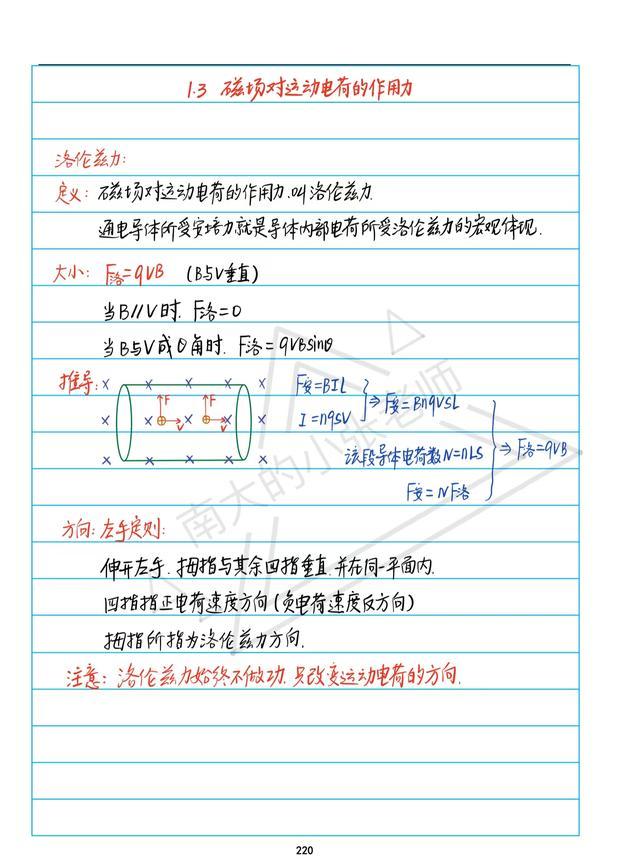 1.3 磁场对运动电荷的作用力
洛伦兹力:
定义: 磁场对运动电荷的作用力.叫洛伦兹力.
通电导体所受安培力就是导体内部电荷所受洛伦兹力的宏观体现.
大小: F洛=qVB (B与V垂直)
当B//V时. F洛=0
当B与V成θ角时. F洛=qVBsinθ
推导:
F
F
V
V
F安=BIL
I=nqsV
⇒F安=BnqVSL
该段导体电荷数N=nLS
F安=NF洛
⇒F洛=qVB
方向: 左手定则:
伸开左手. 拇指与其余四指垂直.并在同一平面内.
四指指正电荷速度方向(负电荷速度反方向)
拇指所指为洛伦兹力方向.
注意: 洛伦兹力始终不做功. 只改变运动电荷的方向.
南大的小张老师
220